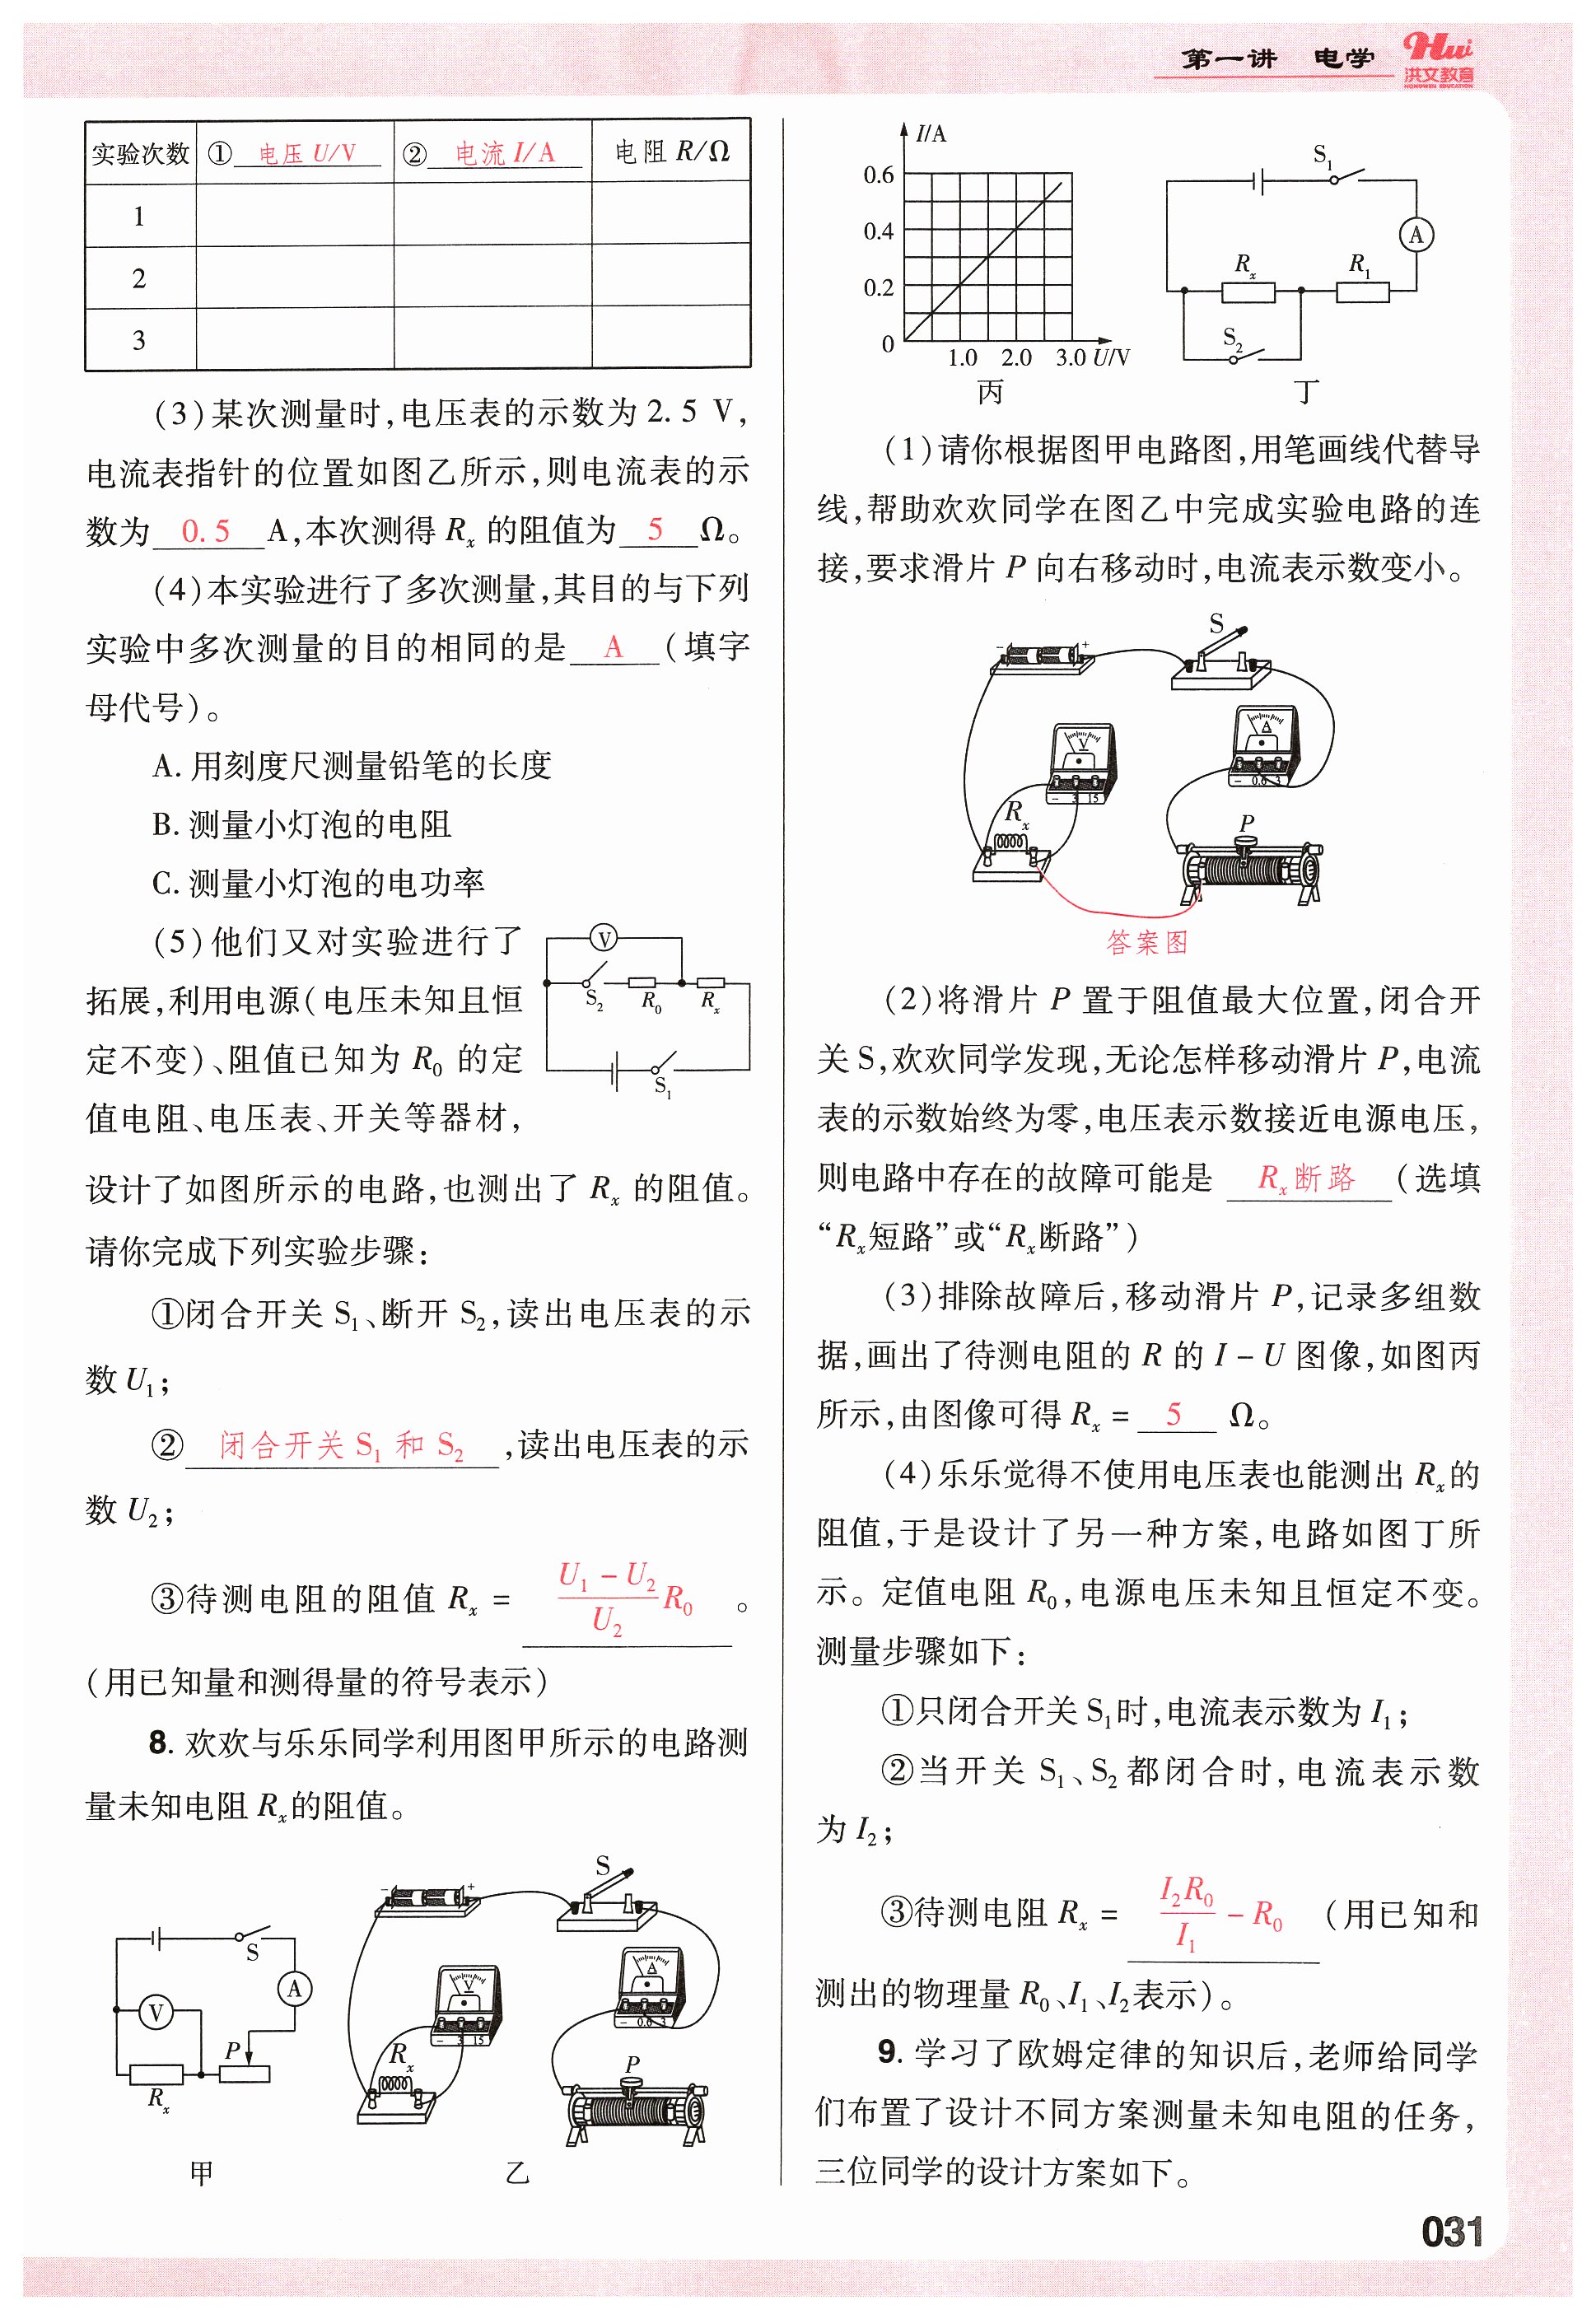 第一讲　电学
Hui
洪文教育
HONGWEN EDUCATION
实验次数 ①电压 U/V ②电流 I/A 电阻 R/Ω
1
2
3
(3)某次测量时,电压表的示数为 2. 5 V,
电流表指针的位置如图乙所示,则电流表的示
数为 0. 5 A,本次测得 Rx 的阻值为 5 Ω。
(4)本实验进行了多次测量,其目的与下列
实验中多次测量的目的相同的是 A (填字
母代号)。
A. 用刻度尺测量铅笔的长度
B. 测量小灯泡的电阻
C. 测量小灯泡的电功率
(5)他们又对实验进行了
拓展,利用电源(电压未知且恒
定不变)、阻值已知为 R0 的定
值电阻、电压表、开关等器材,
V
S2 R0 Rx
S1
设计了如图所示的电路,也测出了 Rx 的阻值。
请你完成下列实验步骤:
①闭合开关 S1、断开 S2,读出电压表的示
数 U1;
② 闭合开关 S1 和 S2 ,读出电压表的示
数 U2;
③待测电阻的阻值 Rx = (U1 - U2)/U2 R0 。
(用已知量和测得量的符号表示)
8. 欢欢与乐乐同学利用图甲所示的电路测
量未知电阻 Rx的阻值。
S
A
V
P
Rx
甲
- +
S
A
- 0.6 3
V
- 3 15
Rx
P
乙
I/A
0.6
0.4
0.2
0
1.0 2.0 3.0 U/V
丙
S1
A
Rx R1
S2
丁
(1)请你根据图甲电路图,用笔画线代替导
线,帮助欢欢同学在图乙中完成实验电路的连
接,要求滑片 P 向右移动时,电流表示数变小。
S
- +
A
- 0.6 3
V
- 3 15
Rx
P
答案图
(2)将滑片 P 置于阻值最大位置,闭合开
关 S,欢欢同学发现,无论怎样移动滑片 P,电流
表的示数始终为零,电压表示数接近电源电压,
则电路中存在的故障可能是 Rx断路 (选填
“Rx短路”或“Rx断路”)
(3)排除故障后,移动滑片 P,记录多组数
据,画出了待测电阻的 R 的 I - U 图像,如图丙
所示,由图像可得 Rx = 5 Ω。
(4)乐乐觉得不使用电压表也能测出 Rx的
阻值,于是设计了另一种方案,电路如图丁所
示。定值电阻 R0,电源电压未知且恒定不变。
测量步骤如下:
①只闭合开关 S1时,电流表示数为 I1;
②当开关 S1、S2 都闭合时,电流表示数
为 I2;
③待测电阻 Rx = I2R0/I1 - R0 (用已知和
测出的物理量 R0、I1、I2表示)。
9. 学习了欧姆定律的知识后,老师给同学
们布置了设计不同方案测量未知电阻的任务,
三位同学的设计方案如下。
031